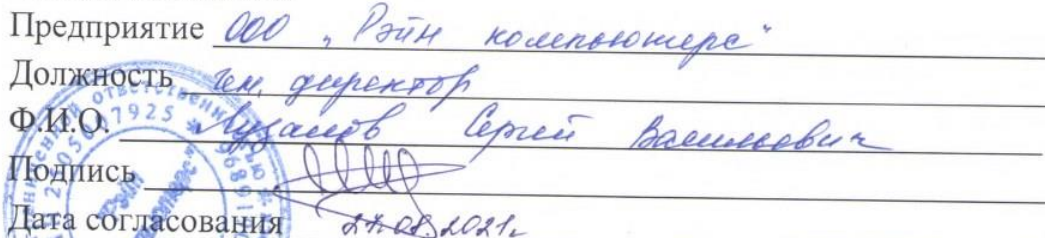 Предприятие ООО „Рэйн компьютерс"
Должность ген. директор
Ф.И.О. Сергей Васильевич
Подпись
Дата согласования 27.08.2021г